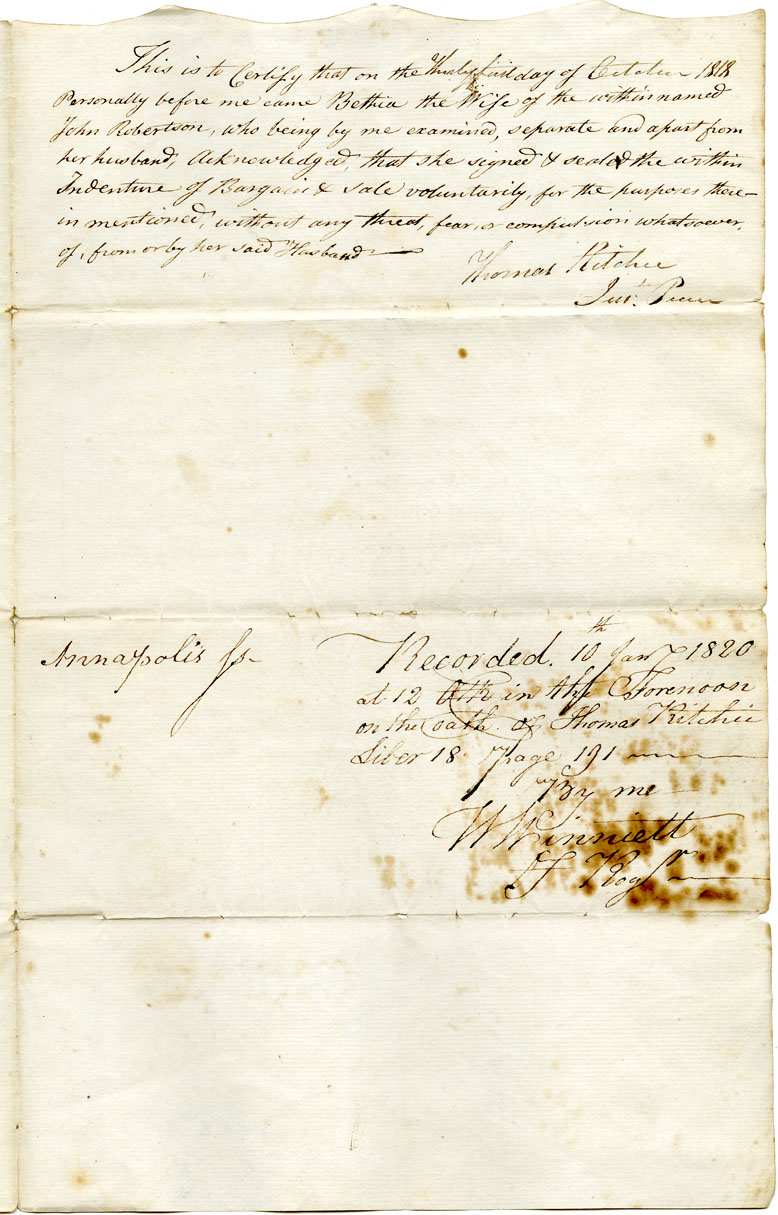 This is to Certify that on the Thirty first day of October 1818
Personally before me came Bethia the Wife of the within named
John Robertson, who being by me examined, separate and apart from
her husband, Acknowledged, that she signed & sealed the within
Indenture of Bargain & Sale voluntarily, for the purposes there-
in mentioned, without any threat, fear, or compulsion whatsoever,
of, from or by her said Husband
Thomas Ritchie
Jus: Peace
Annapolis Ss-
Recorded. 10th Jany 1820
at 12 in the Forenoon
on the oath of Thomas Ritchie
Liber 18 Page 191
By me
W Winniett
D Regr